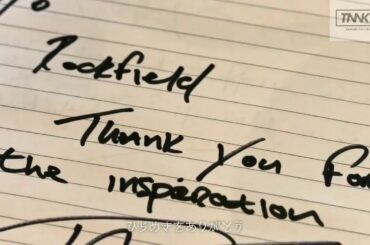 TNNK
To
Rockfield
Thank you for
the inspiration
ひらめきをありがとう